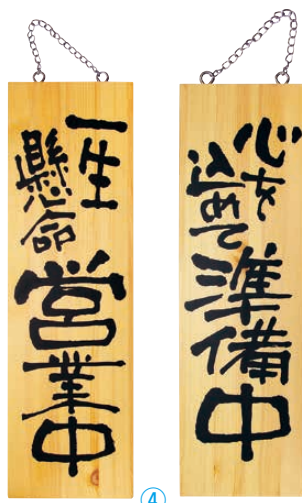 一生
懸命
営業中
心を
込めて
準備中
④